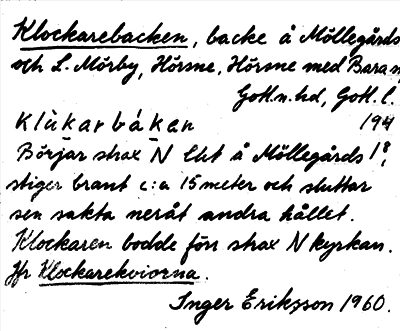 Klockarebacken, backe å Möllegårds
och L. Mörby, Hörsne, Hörsne med Bara sn,
Gotl.n.hd, Gotl.l.
Klùkarbákan 194
Börjar strax N å Möllegårds 1⁸,
stiger brant c:a 15 meter och sluttar
sen sakta neråt andra hållet.
Klockaren bodde förr strax N kyrkan.
Jfr Klockarekviorna.
Inger Eriksson 1960.